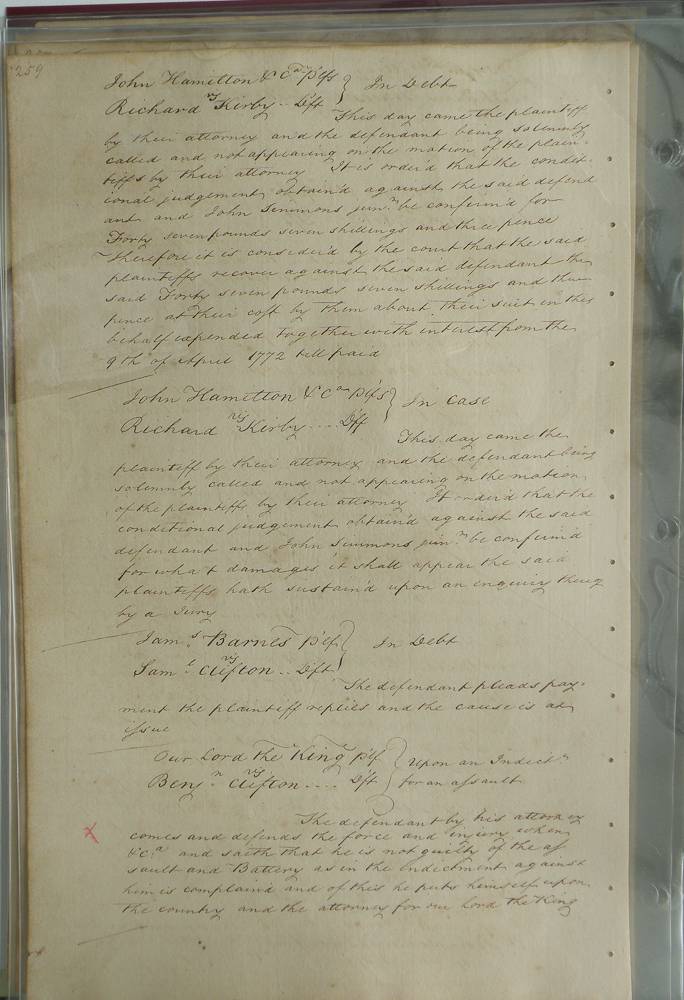 259
John Hamilton & Ca. Plfs } In Debt
vs
Richard Kirby .. Dft
This day came the plaintiff
by their attorney and the defendant being solemnly
called and not appearing on the motion of the plain-
tiffs by their attorney It is order'd that the condit-
ional judgement obtain'd against the said defend
ant and John Simmons jun.r be confirm'd for
Forty seven pounds seven shillings and three pence
Therefore it is consider'd by the court that the said
plaintiffs recover against the said defendant the
said Forty seven pounds seven shillings and three
pence at their cost by them about their suit in this
behalf expended together with interest from the
9th of April 1772 till paid
John Hamilton & Ca. Plfs } In Case
vs
Richard Kirby .... Dft
This day came the
plaintiff by their attorney and the defendant being
solemnly called and not appearing on the motion
of the plaintiffs by their attorney It order'd that the
conditional judgement obtain'd against the said
defendant and John Simmons jun.r be confirm'd
for what damages it shall appear the said
plaintiffs hath sustain'd upon an enquiry thereof
by a Jury
Jam.s Barnes Plf } In Debt
vs
Sam.l Clifton .. Dft
The defendant pleads pay-
ment the plaintiff replies and the cause is at
issue
Our Lord the King Plf } Upon an Indict.m
vs
Benj.n Clifton .... Dft } for an assault
The defendant by his attorney
comes and defends the force and injury when
&c.a and saith that he is not guilty of the as
sault and Battery as in the indictment against
him is complain'd and of this he puts himself upon
the country and the attorney for our Lord the King